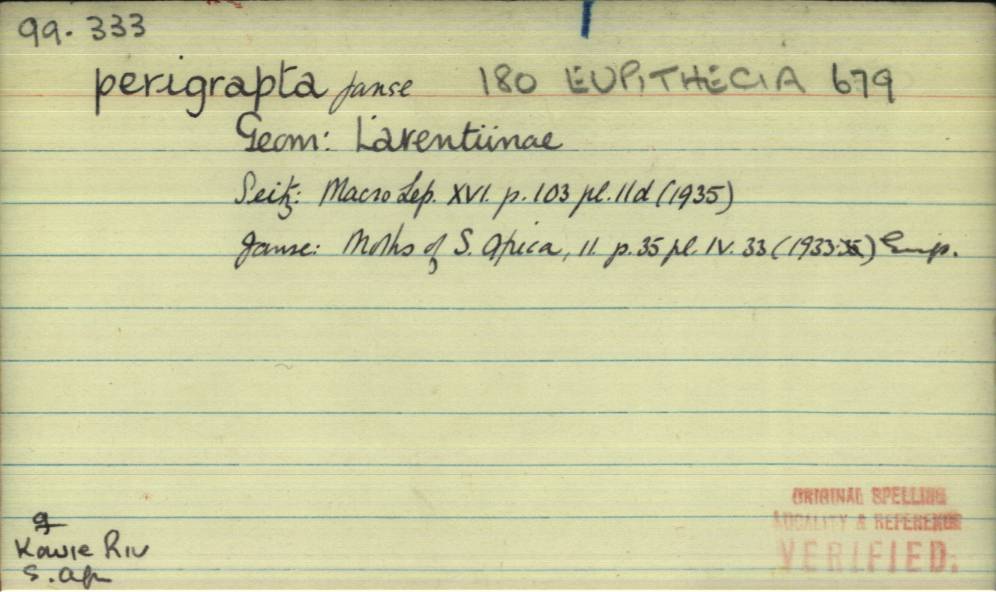 99. 333
perigrapta Janse 180 EUPITHECIA 679
Geom: Larentiinae
Seitz: Macro Lep. XVI. p. 103 pl. 11d (1935)
Janse: Moths of S. Africa, II. p. 35 pl. IV. 33 (1933-35) Eup.
ORIGINAL SPELLING
LOCALITY & REFERENCE
VERIFIED.
♀
Kowie Riv
S. Afr